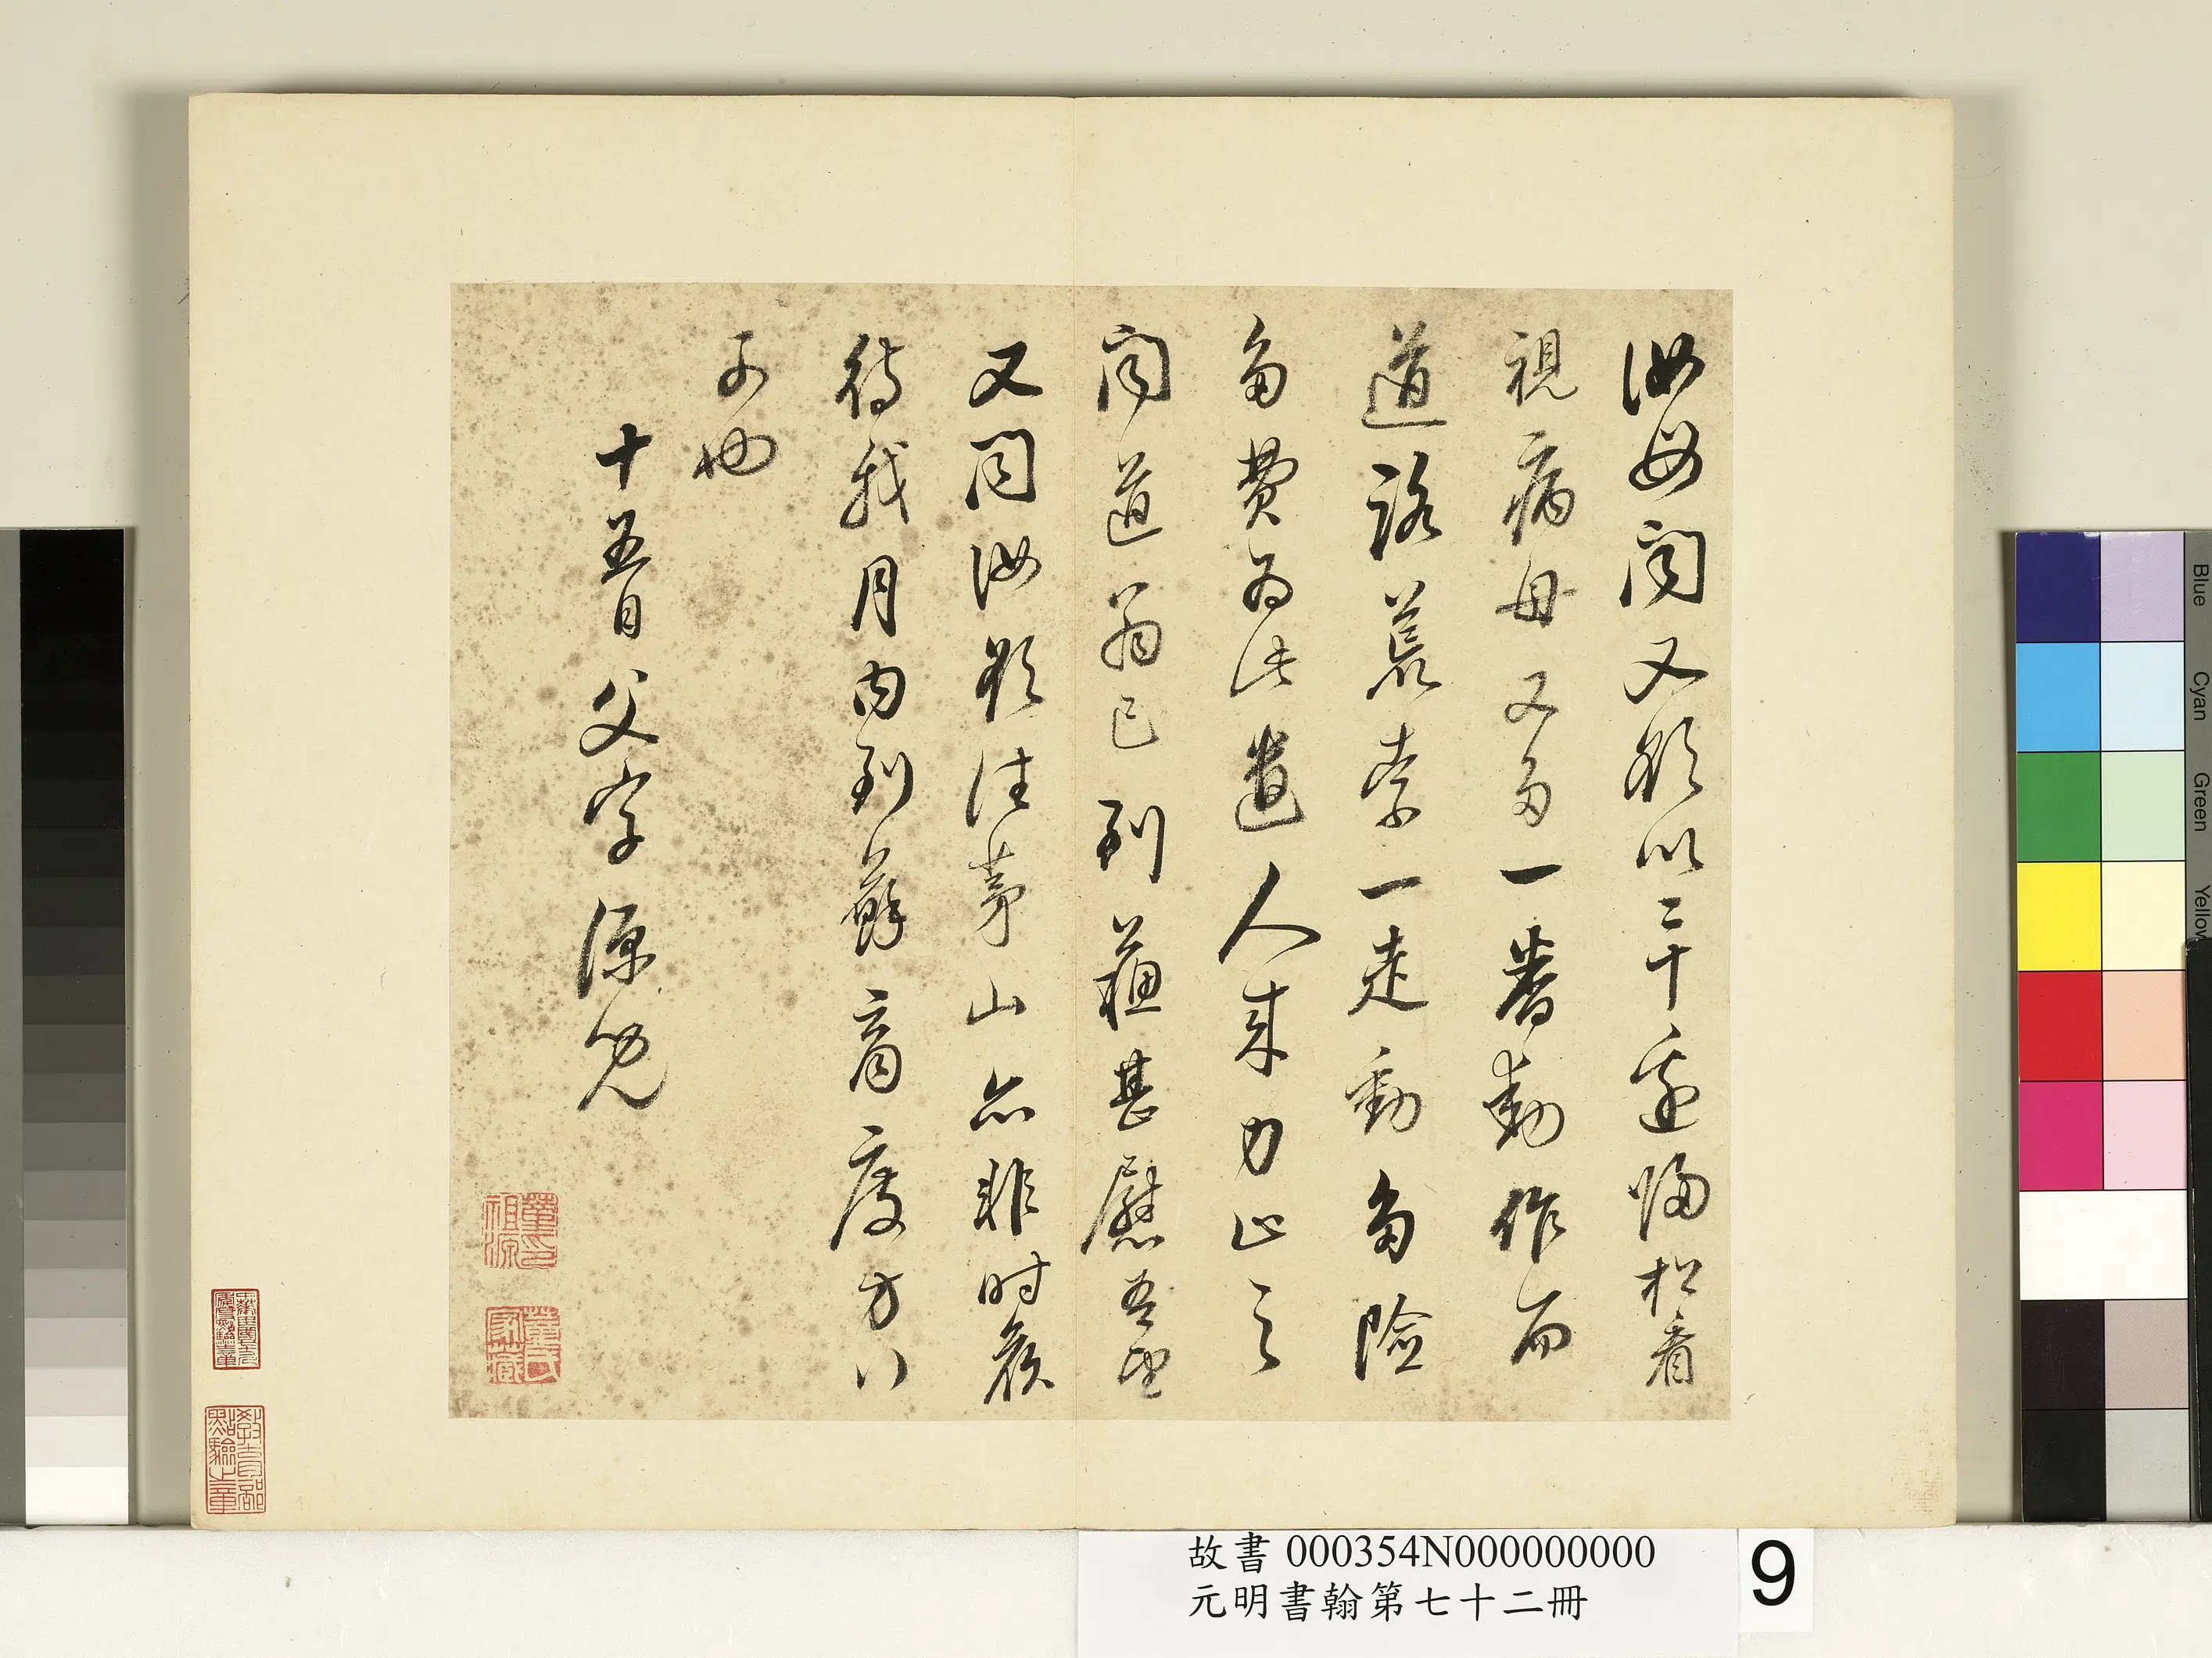 汝母聞又欲以二十邊歸松看
視病母又多一番動作而
道路荒索一走動多險
多費為此遣人來力止之
聞道翁已到蘇甚慰吾望
又聞汝欲往茅山亦非時候
待我月內到蘇商度方行
可也
十五日父字源覽
董印
祖源
董氏
家藏
教育部
點驗之章
故書 000354N000000000
元明書翰第七十二冊
9
Blue
Cyan
Green
Yellow